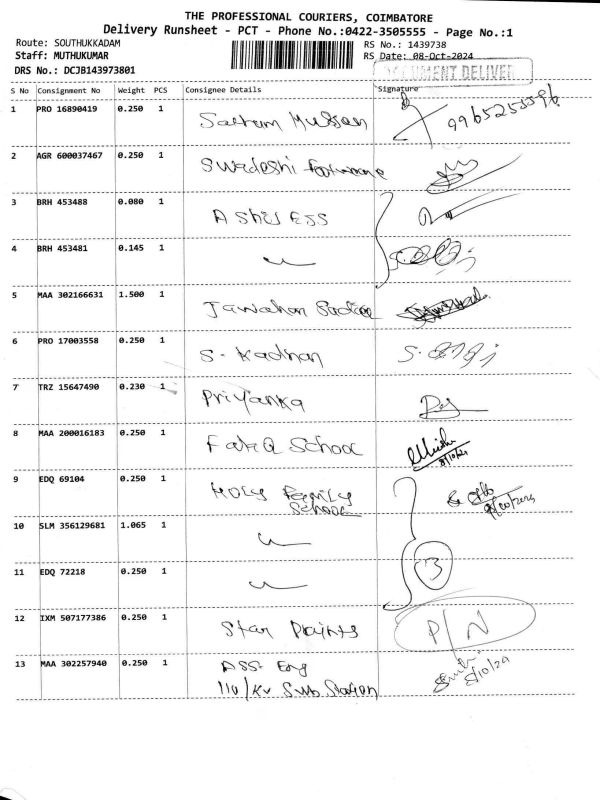 THE PROFESSIONAL COURIERS, COIMBATORE
Delivery Runsheet - PCT - Phone No.:0422-3505555 - Page No.:1
Route: SOUTHUKKADAM RS No.: 1439738
Staff: MUTHUKUMAR RS Date: 08-Oct-2024
DRS No.: DCJB143973801 DOCUMENT DELIVER
S No Consignment No Weight PCS Consignee Details Signature
1 PRO 16890419 0.250 1 9965253596
2 AGR 600037467 0.250 1 Swadeshi
3 BRH 453488 0.080 1
4 BRH 453481 0.145 1
5 MAA 302166631 1.500 1 Jawahar
6 PRO 17003558 0.250 1 S.
7 TRZ 15647490 0.230 1 Priyanka
8 MAA 200016183 0.250 1 School
8/10/24
9 EDQ 69104 0.250 1 Holy Family
School
10 SLM 356129681 1.065 1
11 EDQ 72218 0.250 1 3
12 IXM 507177386 0.250 1 Star Paints P/N
13 MAA 302257940 0.250 1 Ass. Eng
110/KV Sub Station 8/10/24